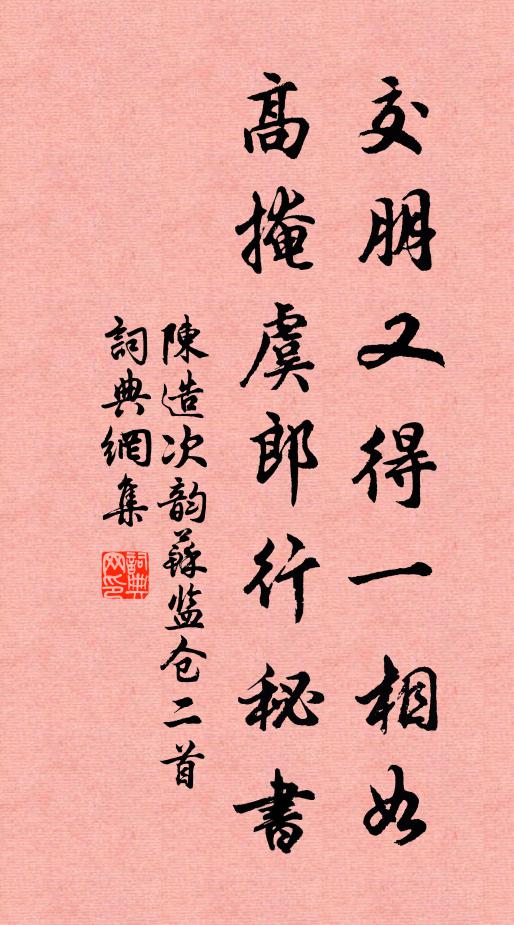 交朋又得一相如
高掩虞郎行秘書
陳造次韵蘇监仓二首
詞典網集
詞典网印